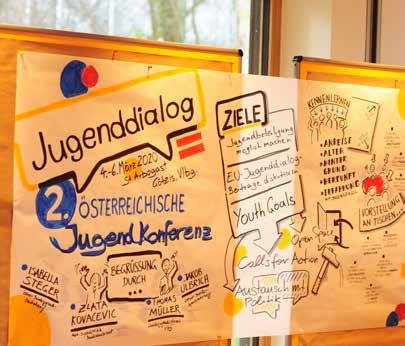 Jugenddialog
4.-6. März 2020
St. Arbogast
Götzis, Vlbg.
2. ÖSTERREICHISCHE
Jugend Konferenz
BEGRÜSSUNG
DURCH ...
ISABELLA
STEGER
ZLATA
KOVACEVIC
THOMAS
MÜLLER
JAKOB
ULBRICH
ZIELE
Jugendbeteiligung
möglich machen
EU-Jugenddialog-
Beiträge diskutieren
Youth Goals
Open Space
Calls for Action
Austausch mit
Politik
KENNENLERNEN
ANREISE
HINTER
GRUND
HERKUNFT
ERFAHRUNG
VORSTELLUNG
AN TISCHEN...